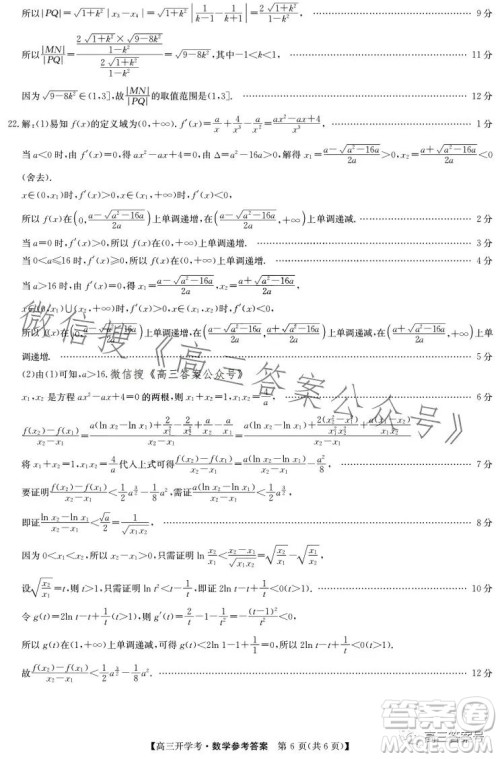 所以|PQ|=√(1+k²)|x₃-x₄|=√(1+k²)·√(9-8k²)|1/(k-1)-1/(k+1)|=2√(1+k²)…, 9分
所以|MN|/|PQ|=(2√(1+k²)×√(9-8k²)/(1-k²))/(2√(1+k²)/(1-k²))=√(9-8k²),其中-1<k<1, 11分
因为√(9-8k²)∈(1,3],故|MN|/|PQ|的取值范围是(1,3]. 12分
22.解:(1)易知f(x)的定义域为(0,+∞). f′(x)=a/x+4/x³-a/x²=(ax²-ax+4)/x³. 1分
当a<0时,由f′(x)=0,得ax²-ax+4=0,由Δ=a²-16a>0,解得x₁=(a-√(a²-16a))/2a>0,x₂=(a+√(a²-16a))/2a<0
(舍去).
x∈(0,x₁)时,f′(x)>0,x∈(x₁,+∞)时,f′(x)<0,
所以f(x)在(0,(a-√(a²-16a))/2a)上单调递增,在((a-√(a²-16a))/2a,+∞)上单调递减. 2分
当a=0时,f′(x)>0,所以f(x)在(0,+∞)上单调递增. 3分
当0<a≤16时,f′(x)≥0,所以f(x)在(0,+∞)上单调递增. 4分
当a>16时,由f′(x)=0,得x₁=(a-√(a²-16a))/2a,x₂=(a+√(a²-16a))/2a.
x∈(0,x₁)∪(x₂,+∞)时,f′(x)>0,x∈(x₁,x₂)时,f′(x)<0,
所以f(x)在(0,(a-√(a²-16a))/2a)上单调递增,在((a-√(a²-16a))/2a,(a+√(a²-16a))/2a)上单调递减,在((a+√(a²-16a))/2a,+∞)上单
调递增. 5分
(2)由(1)可知,a>16. 微信搜《高三答案公众号》
x₁,x₂是方程ax²-ax+4=0的两根,则x₁+x₂=1,x₁x₂=4/a. 6分
(f(x₂)-f(x₁))/(x₂-x₁)=(a(ln x₂-ln x₁)+2/x₁²-2/x₂²+a/x₂-a/x₁)/(x₂-x₁)=a(ln x₂-ln x₁)/(x₂-x₁)+2(x₂+x₁)/(x₁²x₂²)-a/(x₁x₂).
将x₁+x₂=1,x₁x₂=4/a代入上式可得(f(x₂)-f(x₁))/(x₂-x₁)=a(ln x₂-ln x₁)/(x₂-x₁)-a²/8. 7分
要证明(f(x₂)-f(x₁))/(x₂-x₁)<1/2 a^(3/2)-1/8 a²,需证a(ln x₂-ln x₁)/(x₂-x₁)<1/2 a^(3/2),
即证(ln x₂-ln x₁)/(x₂-x₁)<√a/2=1/√(x₁x₂), 8分
因为0<x₁<x₂,所以x₂-x₁>0,只需证明ln x₂/x₁<√(x₂/x₁)-√(x₁/x₂). 9分
设√(x₂/x₁)=t,则t>1,只需证明ln t²<t-1/t,即证2ln t-t+1/t<0(t>1). 10分
令g(t)=2ln t-t+1/t(t>1),则g′(t)=2/t-1-1/t²=-(t-1)²/t²<0,
所以g(t)在(1,+∞)上单调递减,g(t)<2ln 1-1+1=0(t>1).
故(f(x₂)-f(x₁))/(x₂-x₁)<1/2 a^(3/2)-1/8 a². 12分
微信搜《高三答案公众号》
【高三开学考·数学参考答案 第6页(共6页)】
高三答案号